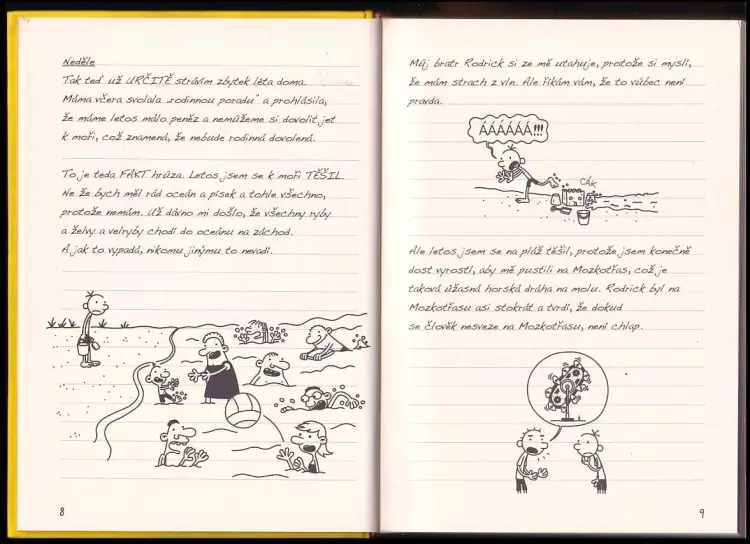 Neděle
Tak teď už URČITĚ strávím zbytek léta doma.
Máma včera svolala „rodinnou poradu“ a prohlásila,
že máme letos málo peněz a nemůžeme si dovolit jet
k moři, což znamená, že nebude rodinná dovolená.
To je teda FAKT hrůza. Letos jsem se k moři TĚŠIL.
Ne že bych měl rád oceán a písek a tohle všechno,
protože nemám. Už dávno mi došlo, že všechny ryby
a želvy a velryby chodí do oceánu na záchod.
A jak to vypadá, nikomu jinýmu to nevadí.
8
Můj bratr Rodrick si ze mě utahuje, protože si myslí,
že mám strach z vln. Ale říkám vám, že to vůbec není
pravda.
ÁÁÁÁÁÁ!!!
CÁK
Ale letos jsem se na pláž těšil, protože jsem konečně
dost vyrostl, aby mě pustili na Mozkotřas, což je
taková úžasná horská dráha na molu. Rodrick byl na
Mozkotřasu asi stokrát a tvrdí, že dokud
se člověk nesveze na Mozkotřasu, není chlap.
9